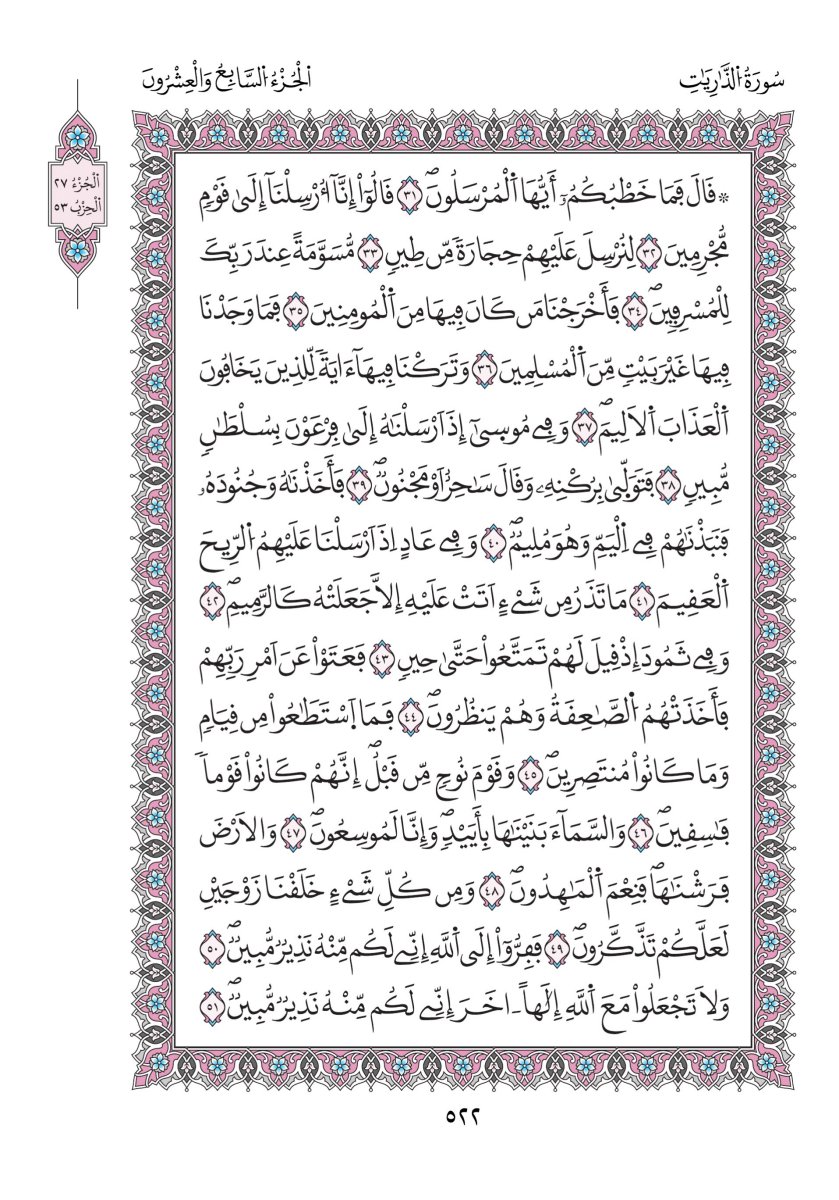 سُورَةُ الذَّارِيَاتِ
الْجُزْءُ السَّابِعُ وَالْعِشْرُونَ
اَلْجُزْءُ ٢٧
اَلْحِزْبُ ٥٣
۞ قَالَ فَمَا خَطْبُكُمُۥٓ أَيُّهَا اَ۬لْمُرْسَلُونَۖ ٣١ قَالُوٓاْ إِنَّآ أُرْسِلْنَآ إِلَىٰ قَوْمٖ
مُّجْرِمِينَ ٣٢ لِنُرْسِلَ عَلَيْهِمْ حِجَارَةٗ مِّن طِينٖ ٣٣ مُّسَوَّمَةً عِندَ رَبِّكَ
لِلْمُسْرِفِينَۖ ٣٤ فَأَخْرَجْنَا مَن كَانَ فِيهَا مِنَ اَ۬لْمُومِنِينَ ٣٥ فَمَا وَجَدْنَا
فِيهَا غَيْرَ بَيْتٖ مِّنَ اَ۬لْمُسْلِمِينَ ٣٦ وَتَرَكْنَا فِيهَآ ءَايَةٗ لِّلذِينَ يَخَافُونَ
اَ۬لْعَذَابَ اَ۬لَالِيمَۖ ٣٧ وَفِے مُوسِىٰٓ إِذَ اَرْسَلْنَٰهُ إِلَىٰ فِرْعَوْنَ بِسُلْطَٰنٖ
مُّبِينٖ ٣٨ فَتَوَلّ۪ىٰ بِرُكْنِهِۦ وَقَالَ سَٰحِرٌ اَوْ مَجْنُونٞۖ ٣٩ فَأَخَذْنَٰهُ وَجُنُودَهُۥ
فَنَبَذْنَٰهُمْ فِے اِ۬لْيَمِّ وَهُوَ مُلِيمٞۖ ٤٠ وَفِے عَادٍ اِذَ اَرْسَلْنَا عَلَيْهِمُ اُ۬لرِّيحَ
اَ۬لْعَقِيمَ ٤١ مَا تَذَرُ مِن شَےْءٍ اَتَتْ عَلَيْهِ إِلَّا جَعَلَتْهُ كَالرَّمِيمِۖ ٤٢
وَفِے ثَمُودَ إِذْ قِيلَ لَهُمْ تَمَتَّعُواْ حَتَّىٰ حِينٖ ٤٣ فَعَتَوْاْ عَنَ اَمْرِ رَبِّهِمْ
فَأَخَذَتْهُمُ اُ۬لصَّٰعِقَةُ وَهُمْ يَنظُرُونَۖ ٤٤ فَمَا اَ۪سْتَطَٰعُواْ مِن قِيَامٖ
وَمَا كَانُواْ مُنتَصِرِينَۖ ٤٥ وَقَوْمَ نُوحٖ مِّن قَبْلُۖ إِنَّهُمْ كَانُواْ قَوْماٗ
فَٰسِقِينَۖ ٤٦ وَالسَّمَآءَ بَنَيْنَٰهَا بِأَيْيْدٖۖ وَإِنَّا لَمُوسِعُونَۖ ٤٧ وَالَارْضَ
فَرَشْنَٰهَاۖ فَنِعْمَ اَ۬لْمَٰهِدُونَۖ ٤٨ وَمِن كُلِّ شَےْءٍ خَلَقْنَا زَوْجَيْنِ
لَعَلَّكُمْ تَذَّكَّرُونَۖ ٤٩ فَفِرُّوٓاْ إِلَى اَ۬للَّهِ إِنِّے لَكُم مِّنْهُ نَذِيرٞ مُّبِينٞۖ ٥٠
وَلَا تَجْعَلُواْ مَعَ اَ۬للَّهِ إِلَٰهاً اٰخَرَ إِنِّے لَكُم مِّنْهُ نَذِيرٞ مُّبِينٞۖ ٥١
٥٢٢